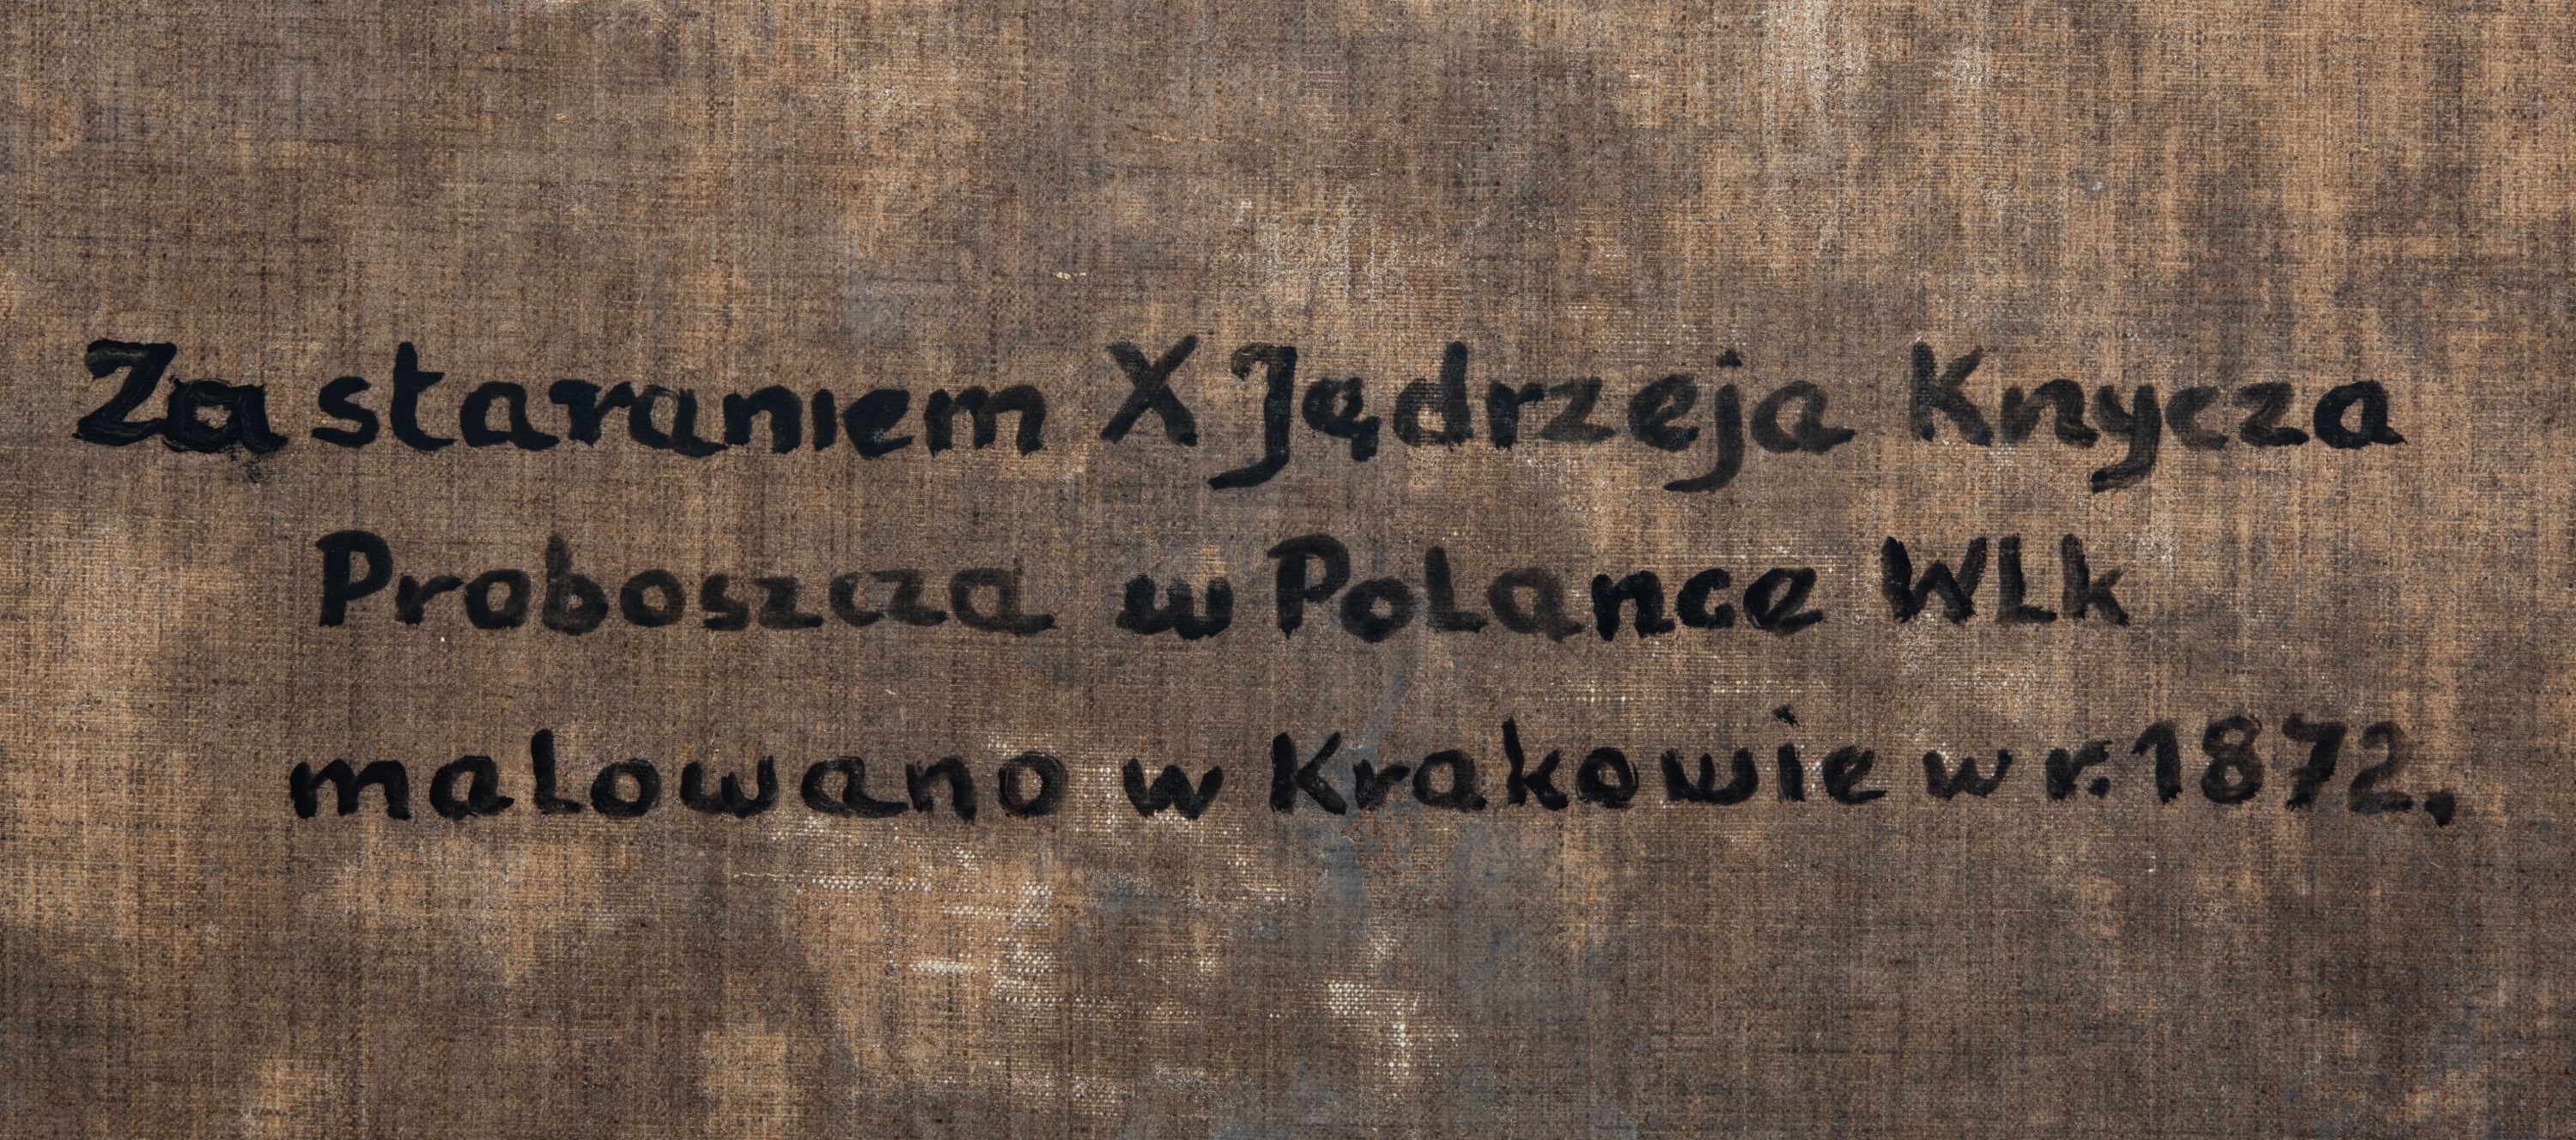 Za staraniem X Jędrzeja Knycza
Proboszcza w Polance WLk
malowano w Krakowie w r. 1872.